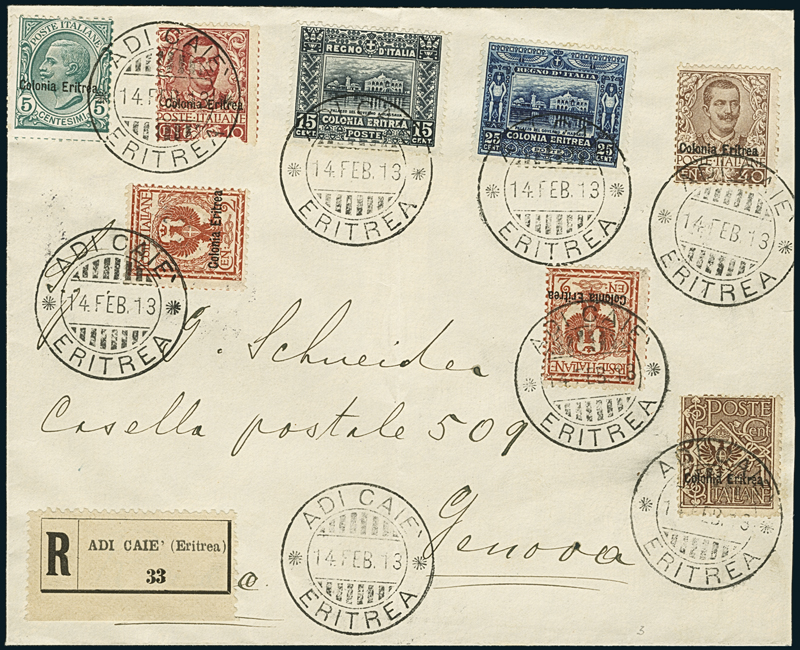 POSTE ITALIANE
Colonia Eritrea
5 5
CENTESIMI
Colonia Eritrea
POSTE ITALIANE
10
REGNO D'ITALIA
15 COLONIA ERITREA 15
CENT. POSTE CENT.
REGNO D'ITALIA
25 COLONIA ERITREA 25
CENT POSTE CENT
Colonia Eritrea
POSTE ITALIANE
40
ADI CAIE'
14.FEB.13
ERITREA
14.FEB.13
ERITREA
14.FEB.13
ERITREA
14.FEB.13
ERITREA
Colonia Eritrea
ITALIANE
ADI CAIE'
14.FEB.13
ERITREA
Colonia Eritrea
POSTE ITALIANE
ERITREA
G. Schneider
Casella postale 509
Genova
POSTE
Cent
Colonia Eritrea
ITALIANE
ERITREA
R ADI CAIE' (Eritrea)
33
ADI CAIE'
14.FEB.13
ERITREA